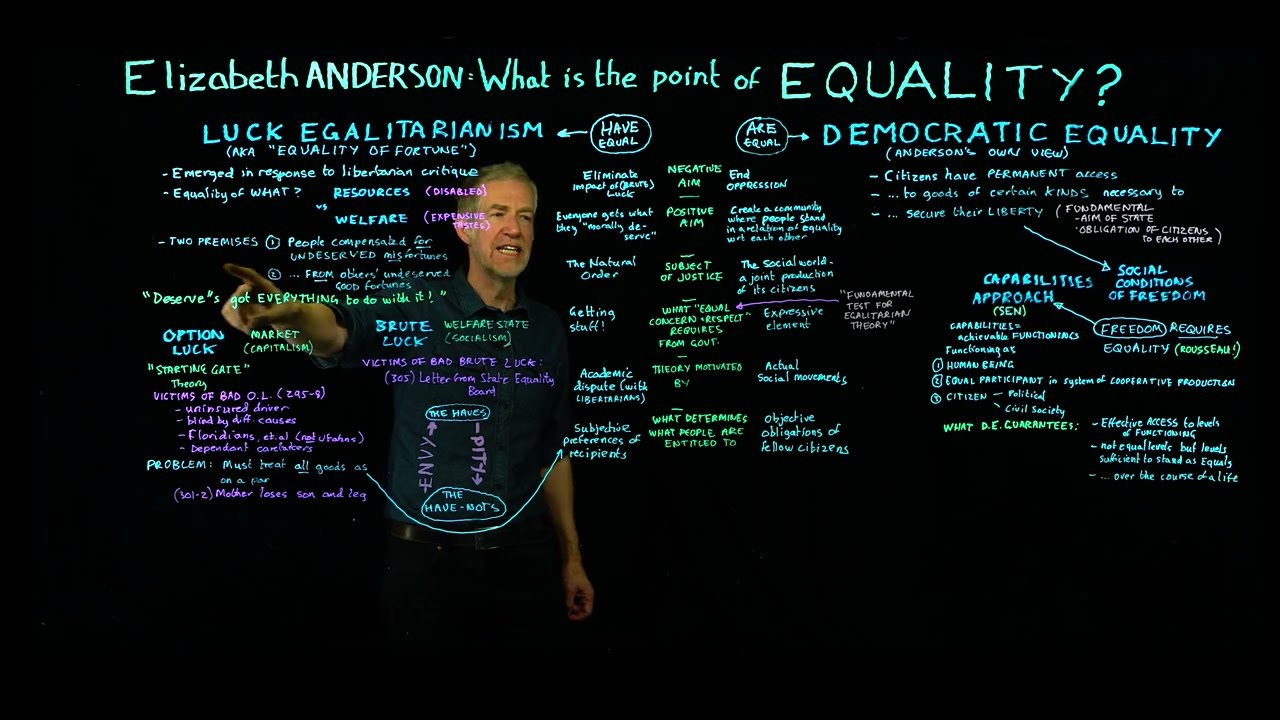 Elizabeth ANDERSON: What is the point of EQUALITY?
LUCK EGALITARIANISM
(AKA "EQUALITY OF FORTUNE")
- Emerged in response to libertarian critique
- Equality of WHAT? RESOURCES (DISABLED)
vs
WELFARE (EXPENSIVE TASTES)
- TWO PREMISES ① People compensated for
UNDESERVED misfortunes
② ... FROM others' undeserved
GOOD fortunes
"Deserve"s got EVERYTHING to do with it!"
OPTION LUCK
MARKET (CAPITALISM)
BRUTE LUCK
WELFARE STATE (SOCIALISM)
"STARTING GATE"
Theory
VICTIMS OF BAD O.L. (295-8)
- uninsured driver
- blind by diff. causes
- Floridians, et.al (not Utahns)
- Dependant caretakers
PROBLEM: Must treat all goods as
on a par
(301-2) Mother loses son and leg
VICTIMS OF BAD BRUTE LUCK:
(305) Letter from State Equality
Board
THE HAVES
ENVY
PITY
THE
HAVE-NOTS
HAVE
EQUAL
ARE
EQUAL
Eliminate
impact of (BRUTE)
LUCK
NEGATIVE
AIM
End
OPPRESSION
Everyone gets what
they "morally de-
serve"
POSITIVE
AIM
Create a community
where people stand
in a relation of equality
wrt each other
The Natural
Order
SUBJECT
OF JUSTICE
The Social world-
a joint production
of its citizens
Getting
stuff!
WHAT "EQUAL
CONCERN + RESPECT"
REQUIRES
FROM GOVT.
Expressive
element
"FUNDAMENTAL
TEST FOR
EGALITARIAN
THEORY"
Academic
dispute (with
LIBERTARIANS)
THEORY MOTIVATED
BY
Actual
Social movements
Subjective
preferences of
recipients
WHAT DETERMINES
WHAT PEOPLE ARE
ENTITLED TO
Objective
obligations of
fellow citizens
DEMOCRATIC EQUALITY
(ANDERSON'S OWN VIEW)
- Citizens have PERMANENT access
- ... to goods of certain KINDS necessary to
- ... secure their LIBERTY
(FUNDAMENTAL
-AIM OF STATE
·OBLIGATION OF CITIZENS
TO EACH OTHER)
SOCIAL
CONDITIONS
OF FREEDOM
CAPABILITIES
APPROACH
(SEN)
FREEDOM REQUIRES
EQUALITY (ROUSSEAU!)
CAPABILITIES =
achievable FUNCTIONINGS
Functioning as
① HUMAN BEING
② EQUAL PARTICIPANT in system of COOPERATIVE PRODUCTION
③ CITIZEN - Political
- Civil Society
WHAT D.E. GUARANTEES:
- Effective ACCESS to levels
of FUNCTIONING
- not equal levels but levels
sufficient to stand as Equals
- ... over the course of a life